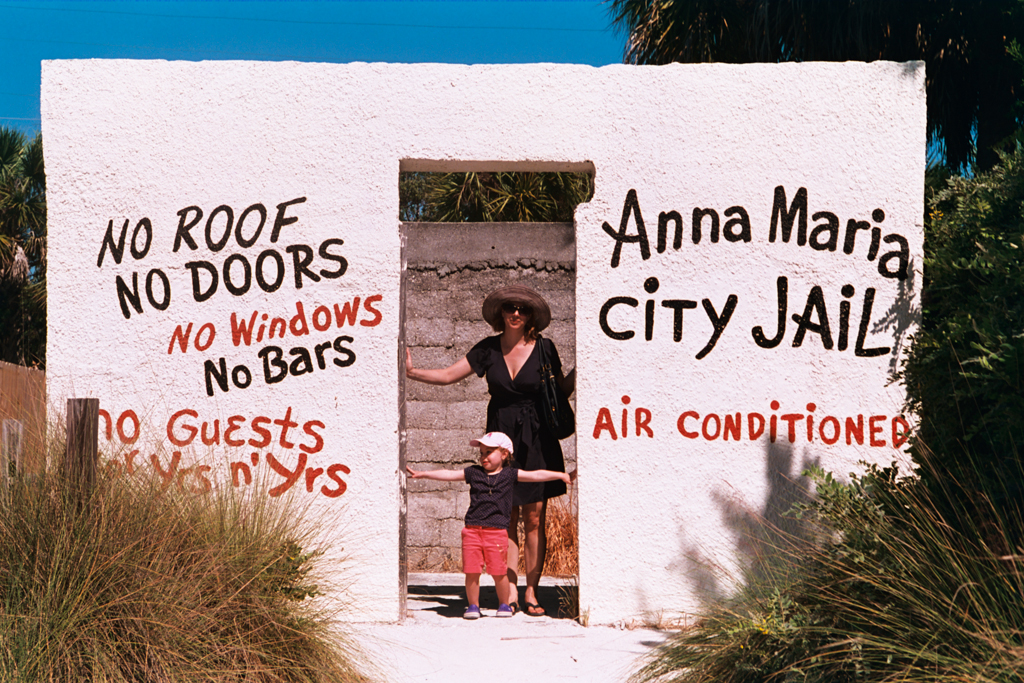 NO ROOF
NO DOORS
NO WINDOWS
No BARS
no GUESTS
Yrs n' Yrs
Anna Maria
CITY JAIL
AIR CONDITIONED